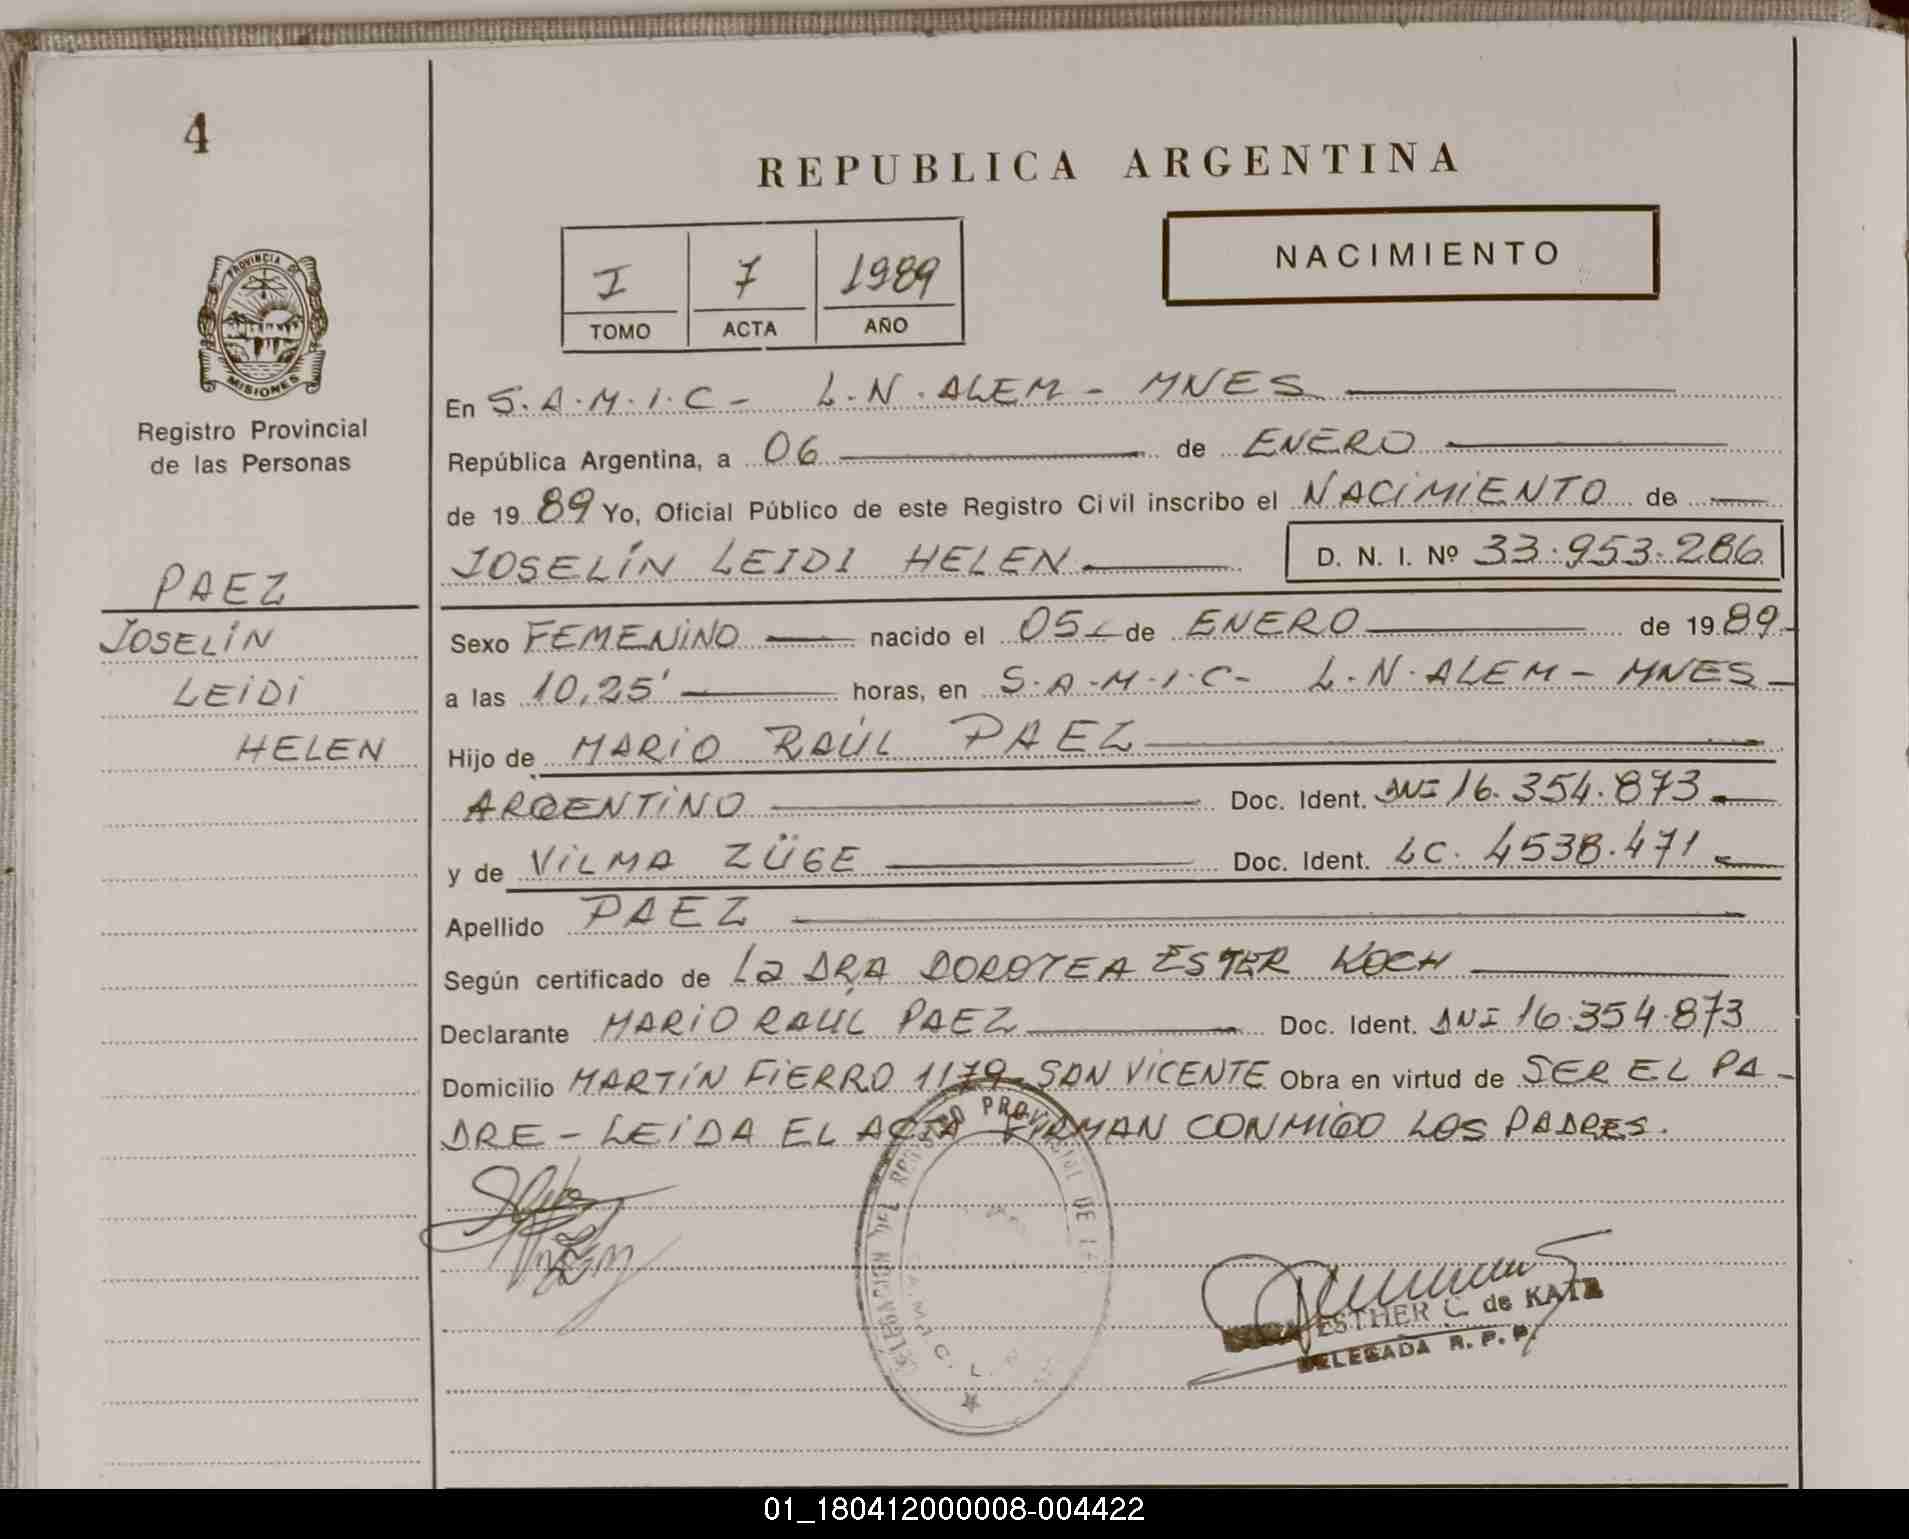 4
REPUBLICA ARGENTINA
NACIMIENTO
I 7 1989
TOMO ACTA AÑO
PROVINCIA DE
MISIONES
Registro Provincial
de las Personas
PAEZ
JOSELÍN
LEIDI
HELEN
En S.A.M.I.C - L.N.ALEM - MNES
República Argentina, a 06 de ENERO
de 1989 Yo, Oficial Público de este Registro Civil inscribo el NACIMIENTO de
JOSELÍN LEIDI HELEN D. N. I. Nº 33.953.286
Sexo FEMENINO nacido el 05 de ENERO de 1989
a las 10,25' horas, en S.A.M.I.C- L.N.ALEM - MNES
Hijo de MARIO RAÚL PAEZ
ARGENTINO Doc. Ident. DNI 16.354.873
y de VILMA ZÜGE Doc. Ident. LC. 4538.471
Apellido PAEZ
Según certificado de La DRA DOROTEA ESTER KOCH
Declarante MARIO RAÚL PAEZ Doc. Ident. DNI 16.354.873
Domicilio MARTÍN FIERRO 1179 - SAN VICENTE Obra en virtud de SER EL PA-
DRE - LEIDA EL ACTA FIRMAN CONMIGO LOS PADRES.
DELEGACION DEL REGISTRO PROVINCIAL DE
ESTHER C. de KATZ
DELEGADA R. P. P.
01_180412000008-004422